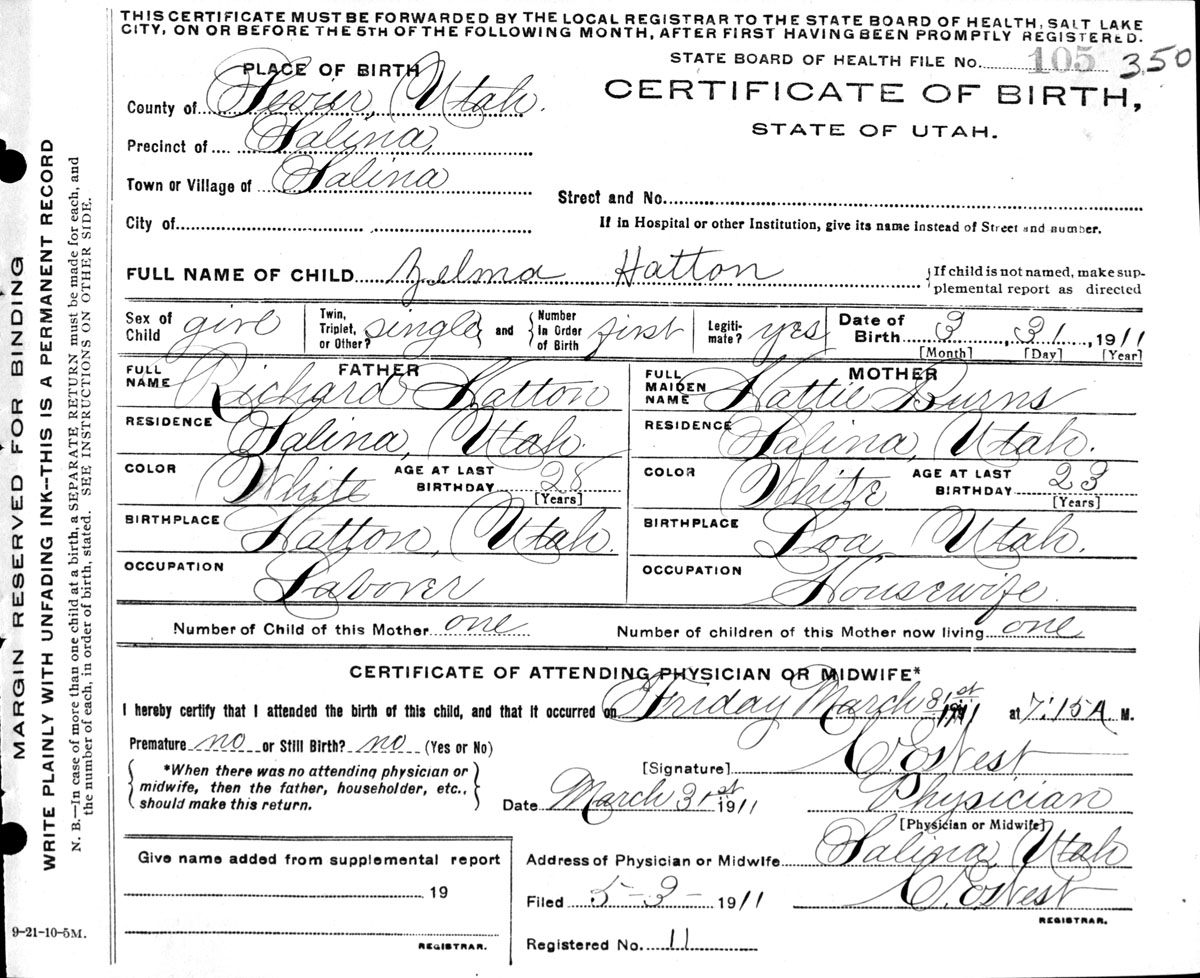 THIS CERTIFICATE MUST BE FORWARDED BY THE LOCAL REGISTRAR TO THE STATE BOARD OF HEALTH, SALT LAKE
CITY, ON OR BEFORE THE 5TH OF THE FOLLOWING MONTH, AFTER FIRST HAVING BEEN PROMPTLY REGISTERED.
STATE BOARD OF HEALTH FILE NO. 105 350
CERTIFICATE OF BIRTH,
STATE OF UTAH.
PLACE OF BIRTH
County of Sevier, Utah.
Precinct of Salina,
Town or Village of Salina
Street and No.
City of
If in Hospital or other Institution, give its name instead of Street and number.
FULL NAME OF CHILD Zelma Hatton
{If child is not named, make sup-
plemental report as directed
Sex of Child girl
Twin, Triplet, or Other? single and {Number In Order of Birth first
Legiti-mate? yes
Date of Birth 3, 31, 1911
[Month] [Day] [Year]
FATHER
FULL NAME Richard Hatton
RESIDENCE Salina, Utah.
COLOR White AGE AT LAST BIRTHDAY 28
[Years]
BIRTHPLACE Hatton, Utah.
OCCUPATION Laborer
MOTHER
FULL MAIDEN NAME Hattie Burns
RESIDENCE Salina, Utah.
COLOR White AGE AT LAST BIRTHDAY 23
[Years]
BIRTHPLACE Loa, Utah.
OCCUPATION Housewife.
Number of Child of this Mother one Number of children of this Mother now living one
CERTIFICATE OF ATTENDING PHYSICIAN OR MIDWIFE*
I hereby certify that I attended the birth of this child, and that it occurred on Friday March 31st 1911 at 7:15 A. M.
Premature no or Still Birth? no (Yes or No)
*When there was no attending physician or
midwife, then the father, householder, etc.,
should make this return.
[Signature] C. E. West
Date March 31st 1911 Physician
[Physician or Midwife]
Address of Physician or Midwife Salina, Utah
Filed 5-3- 1911 C. E. West
REGISTRAR.
Registered No. 11
Give name added from supplemental report
19
REGISTRAR.
9-21-10-5M.
MARGIN RESERVED FOR BINDING
WRITE PLAINLY WITH UNFADING INK--THIS IS A PERMANENT RECORD
N. B.—In case of more than one child at a birth, a SEPARATE RETURN must be made for each, and
the number of each, in order of birth, stated. SEE INSTRUCTIONS ON OTHER SIDE.